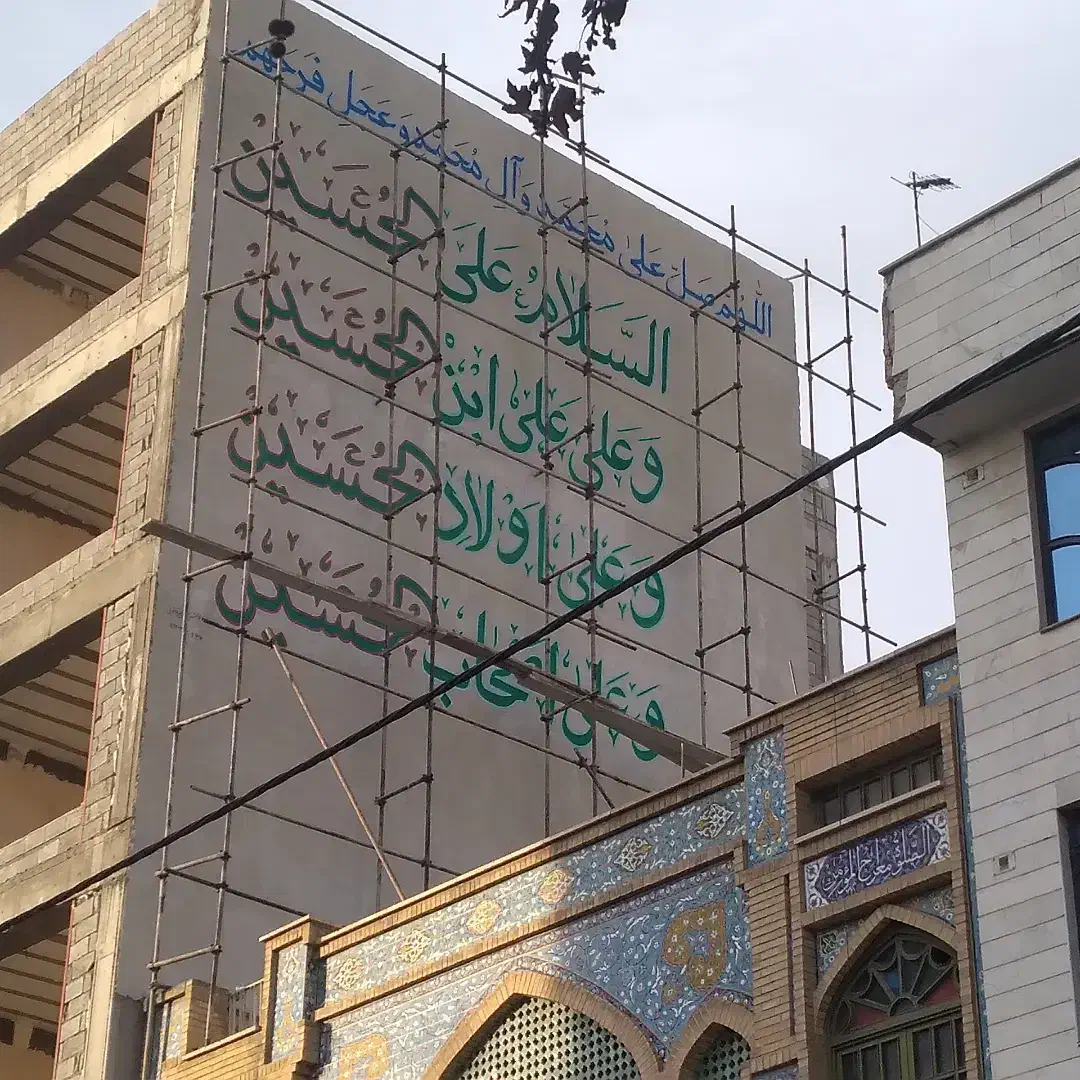 اللهم صل علی محمد و آل محمد و عجل فرجهم
السلام علی الحسین
و علی علی ابن الحسین
و علی اولاد الحسین
و علی اصحاب الحسین
الصلوة معراج المؤمن